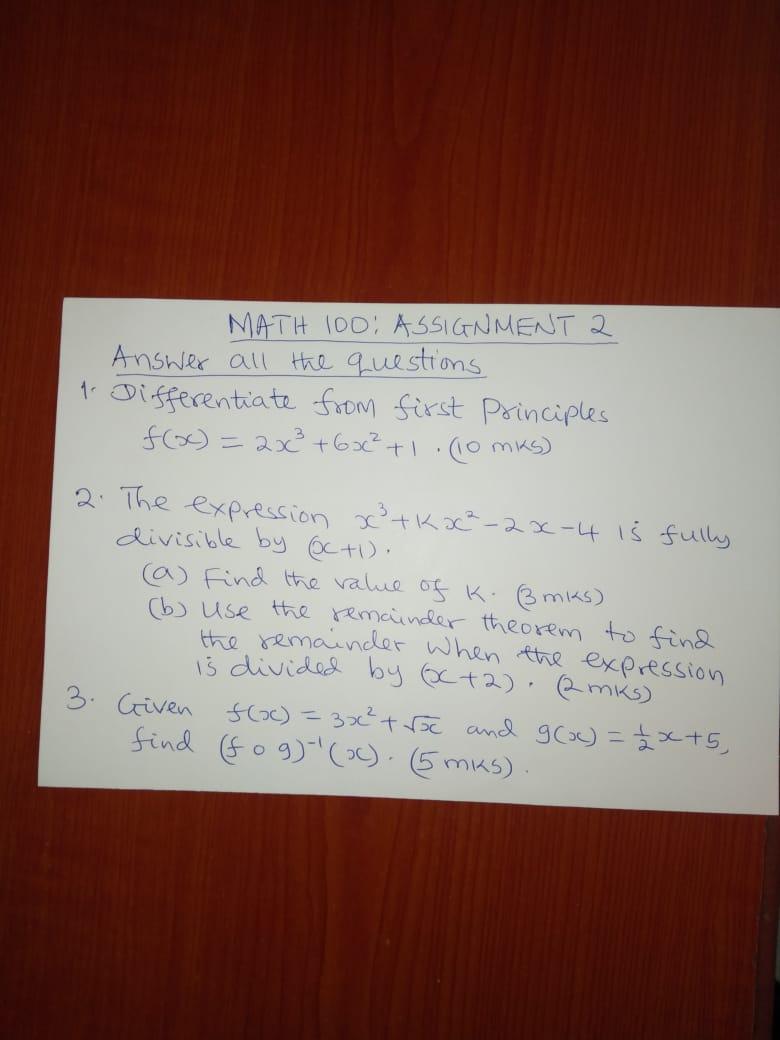 MATH 100: ASSIGNMENT 2
Answer all the questions
1. Differentiate from first Principles
f(x) = 2x³ + 6x² + 1 . (10 mks)
2. The expression x³ + Kx² - 2x - 4 is fully
divisible by (x+1).
(a) Find the value of K. (3 mks)
(b) Use the remainder theorem to find
the remainder when the expression
is divided by (x+2). (2 mks)
3. Given f(x) = 3x² + √x and g(x) = ½x + 5,
find (f o g)⁻¹(x). (5 mks).